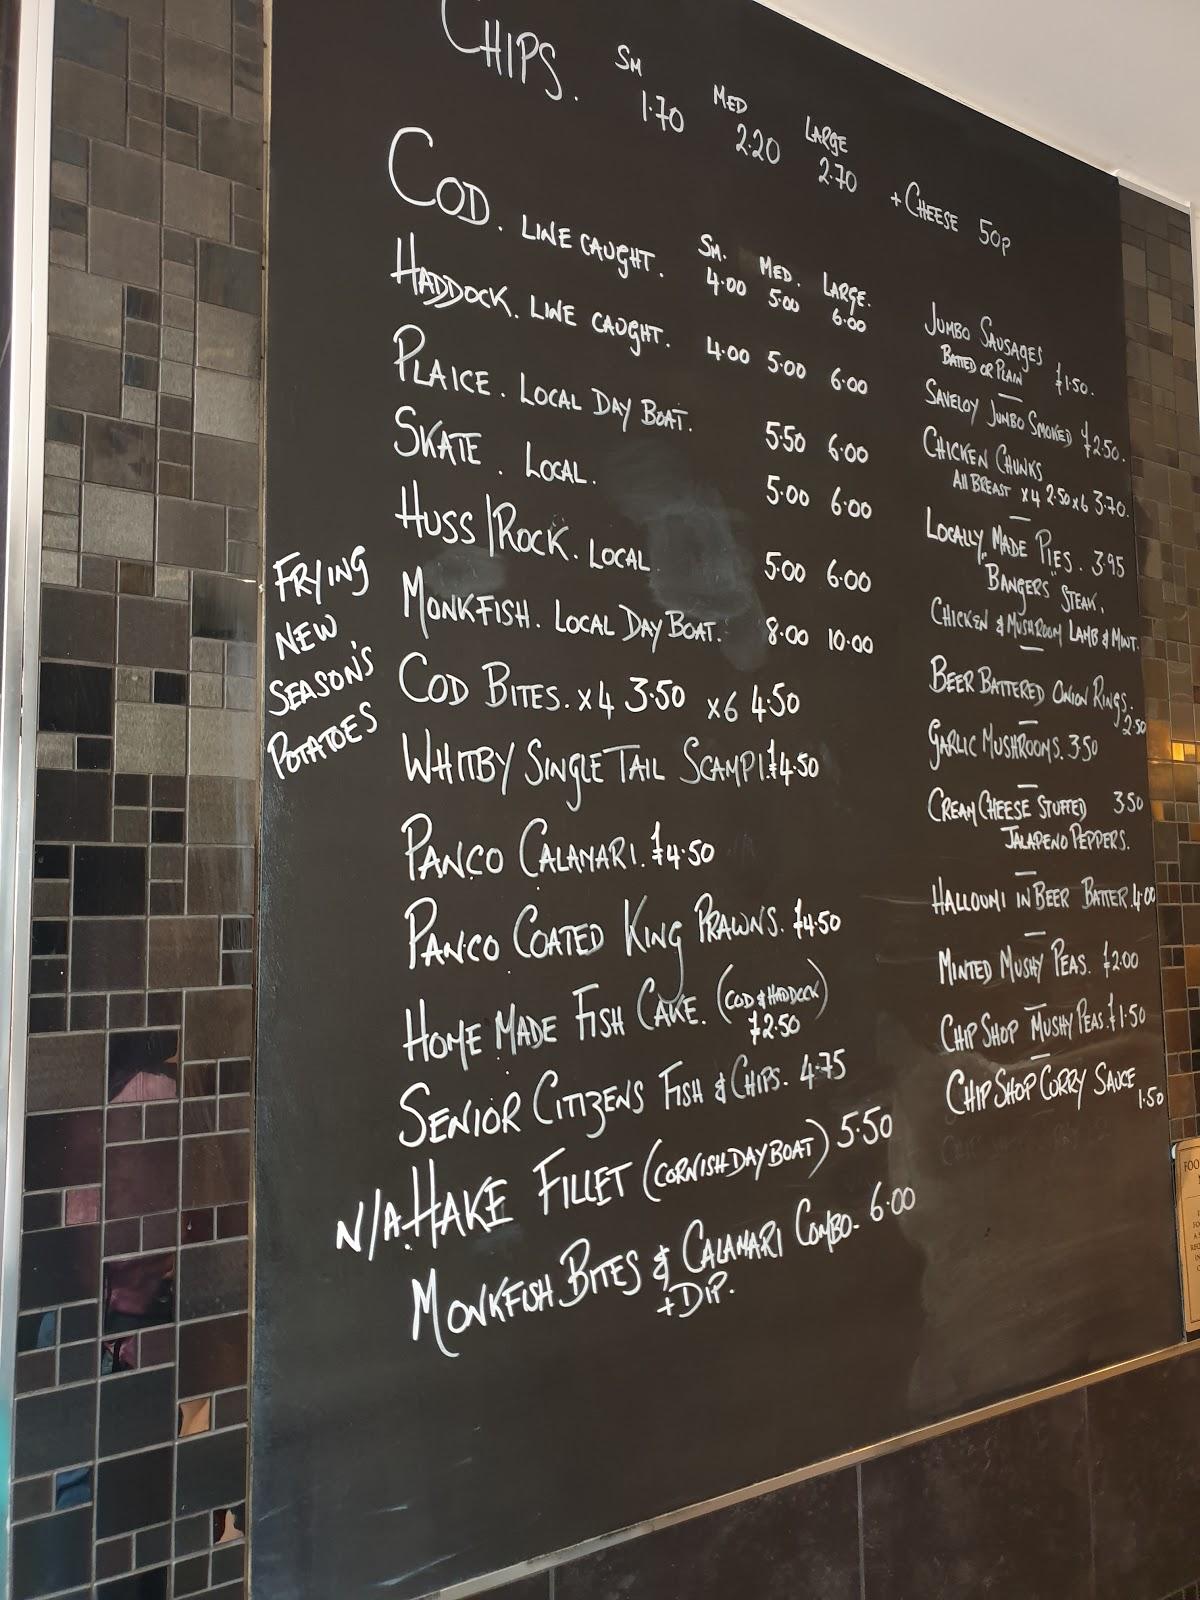 CHIPS. SM 1.70 MED 2.20 LARGE 2.70 + CHEESE 50p
COD. LINE CAUGHT. SM. 4.00 MED. 5.00 LARGE. 6.00
HADDOCK. LINE CAUGHT. 4.00 5.00 6.00
PLAICE. LOCAL DAY BOAT. 5.50 6.00
SKATE. LOCAL. 5.00 6.00
HUSS/ROCK. LOCAL 5.00 6.00
MONKFISH. LOCAL DAY BOAT. 8.00 10.00
COD BITES. x4 3.50 x6 4.50
WHITBY SINGLE TAIL SCAMPI. £4.50
PANCO CALAMARI. £4.50
PANCO COATED KING PRAWNS. £4.50
HOME MADE FISH CAKE. (COD & HADDOCK)
£2.50
SENIOR CITIZENS FISH & CHIPS. 4.75
N/A. HAKE FILLET (CORNISH DAY BOAT) 5.50
MONKFISH BITES & CALAMARI COMBO- 6.00
+ DIP.
FRYING
NEW
SEASON'S
POTATOES
JUMBO SAUSAGES
BATTED OR PLAIN £1.50.
SAVELOY JUMBO SMOKED £2.50.
CHICKEN CHUNKS
All BREAST x4 2.50 x6 3.70.
LOCALLY MADE PIES. 3.95
"BANGERS" STEAK,
CHICKEN & MUSHROOM LAMB & MINT.
BEER BATTERED ONION RINGS.
2.50
GARLIC MUSHROOMS. 3.50
CREAM CHEESE STUFFED 3.50
JALAPENO PEPPERS.
HALLOUMI IN BEER BATTER. 4.00
MINTED MUSHY PEAS. £2.00
CHIP SHOP MUSHY PEAS. £1.50
CHIP SHOP CURRY SAUCE
1.50
FOO